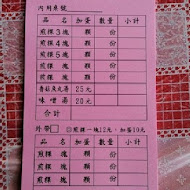 內用桌號
品 名 加蛋 數量 小計
煎粿3塊 顆 份
煎粿4塊 顆 份
煎粿5塊 顆 份
香菇魚丸湯 25元
味噌湯 20元
外帶□ 煎粿一塊12元,加蛋10元
品 名 加蛋 數量 小計
煎粿 塊 顆 份
煎粿 塊 顆 份
煎粿 塊 顆 份